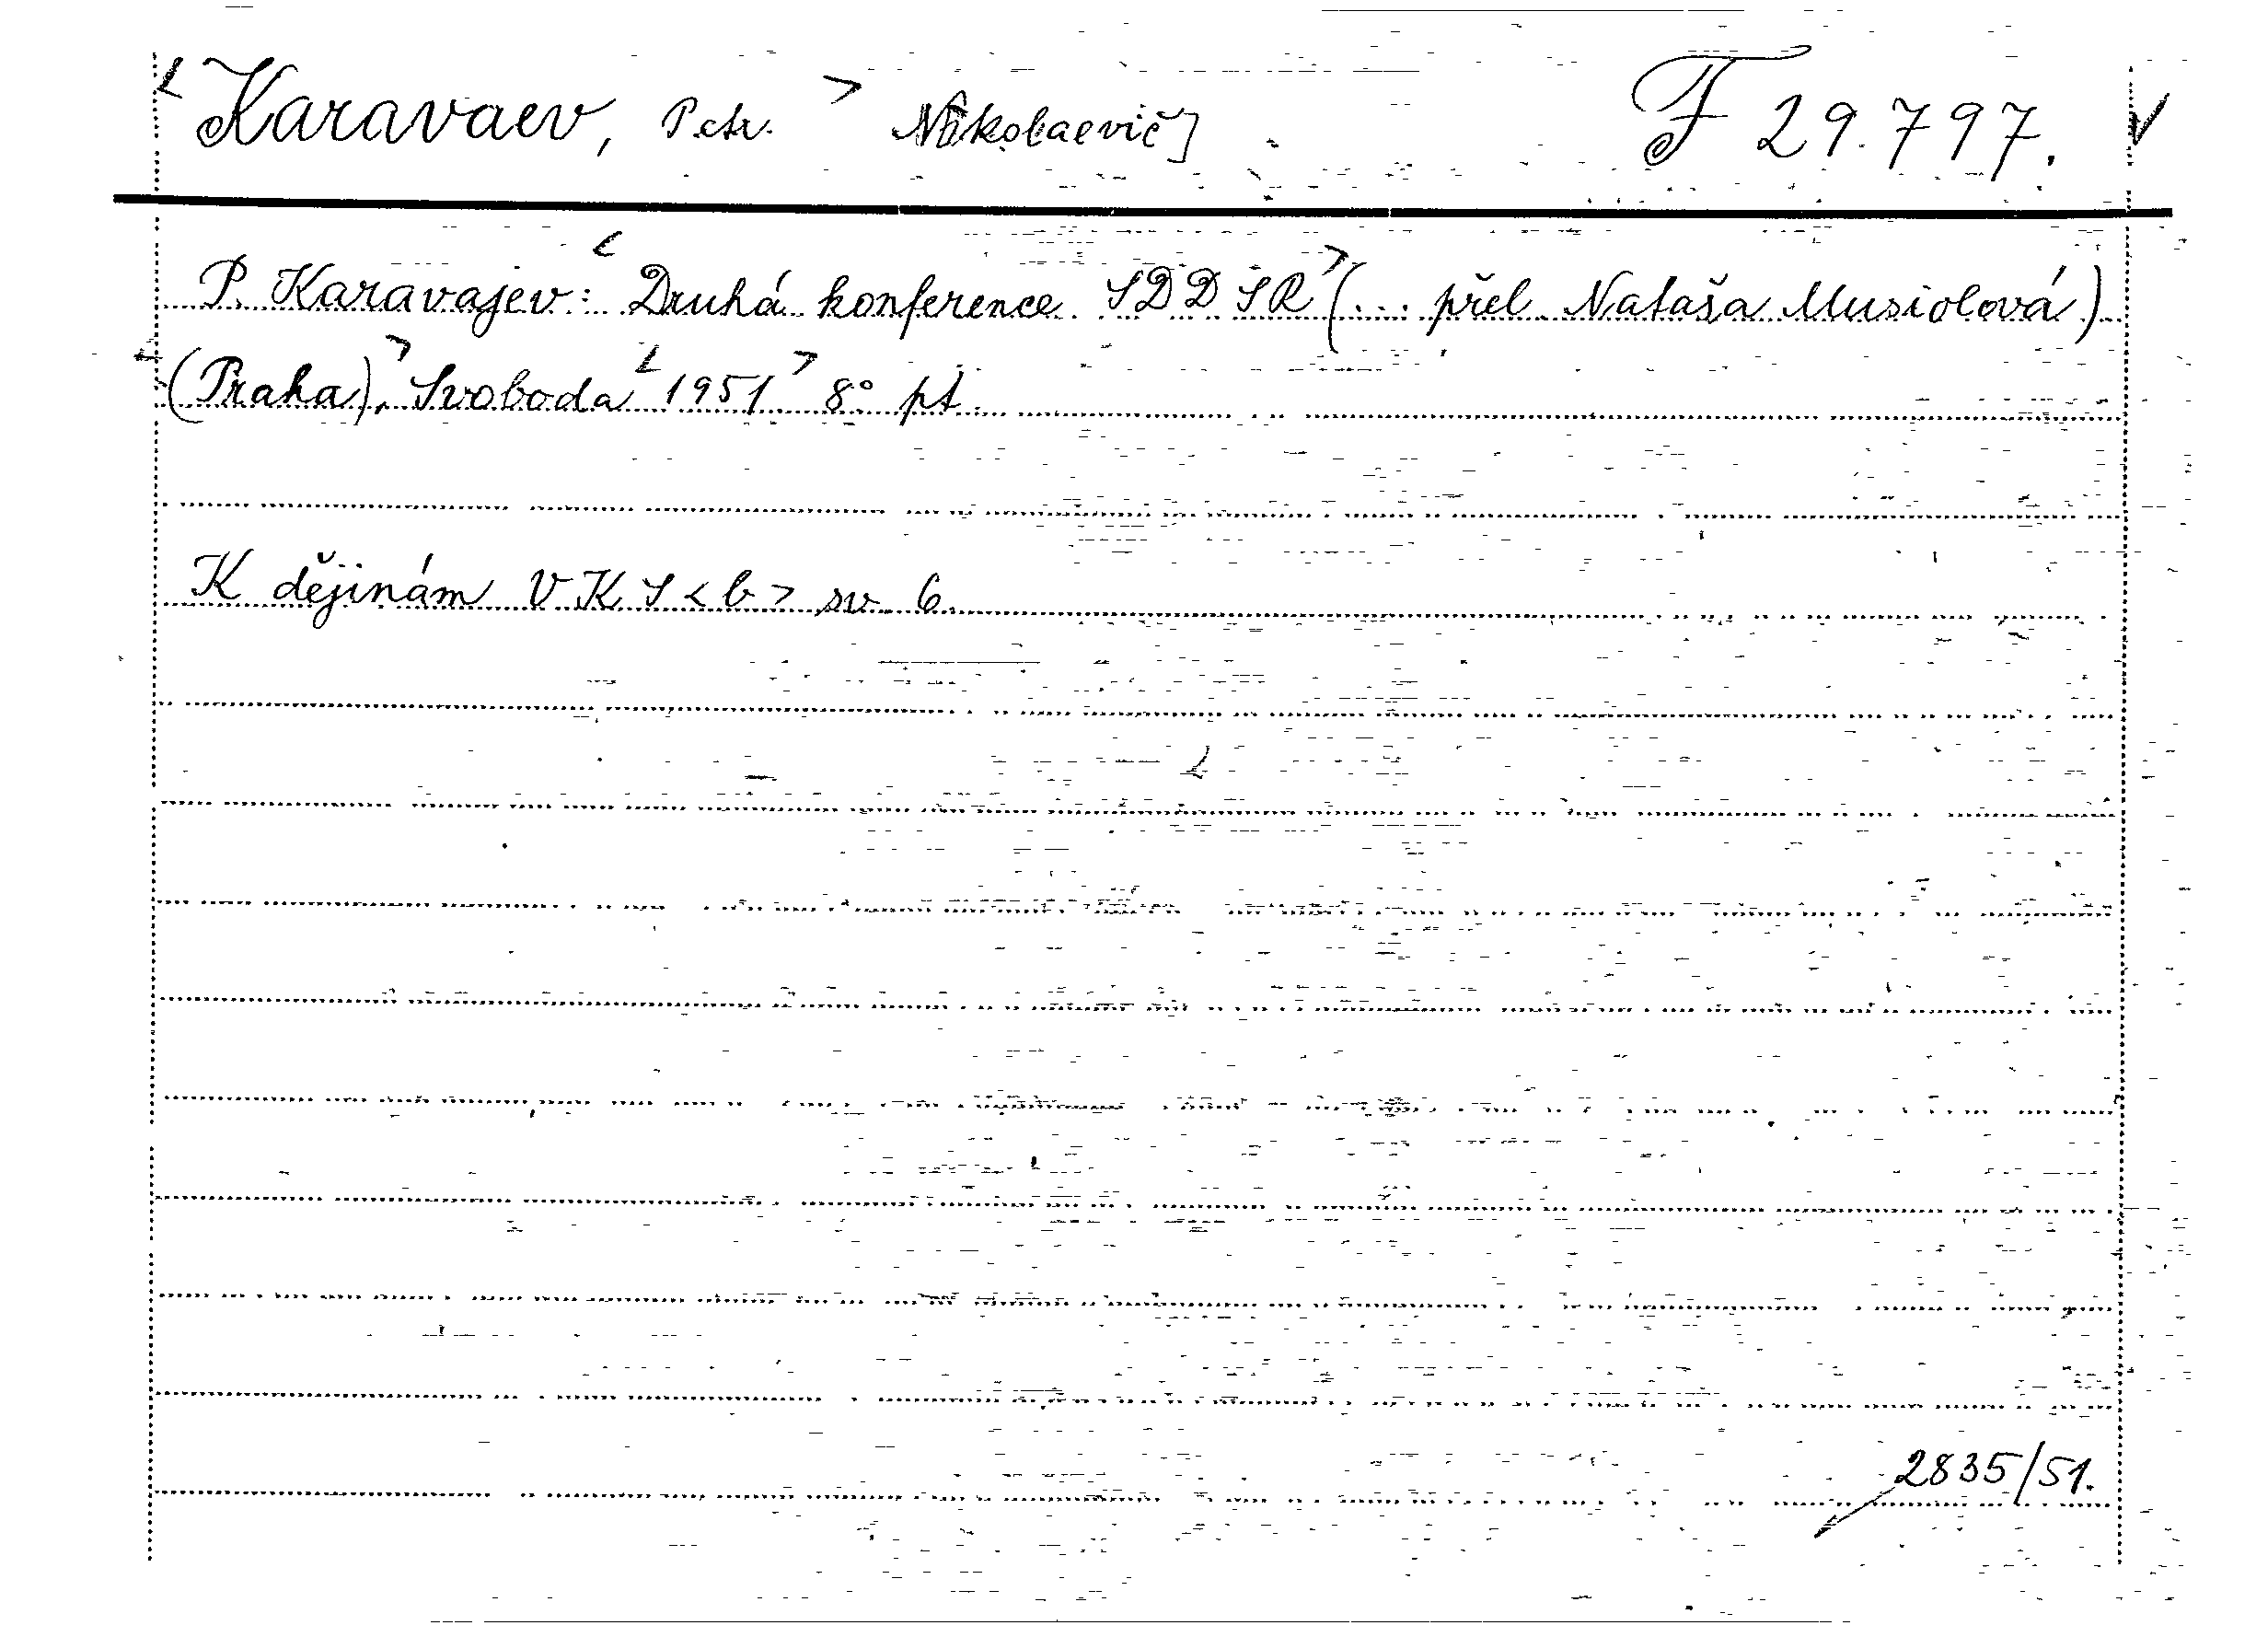 Karavaev, Petr. Nikolaevič] F 29.797.
P. Karavajev: Druhá konference SDDSR (... přel. Nataša Musiolová)
(Praha), Svoboda 1951 8° pt.
K dějinám VKS<b> sv. 6.
2835/51.